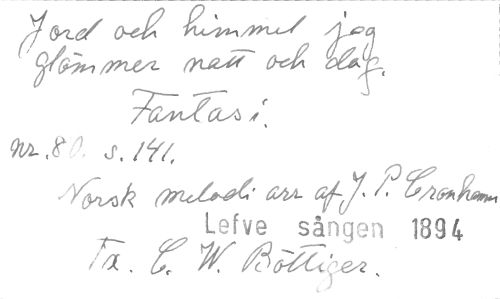 Jord och himmel jag
glömmer natt och dag.
Fantasi.
nr. 80. s. 141.
Norsk melodi arr af J. P. Cronhamn
Lefve sången 1894
Tx. C. W. Böttiger.